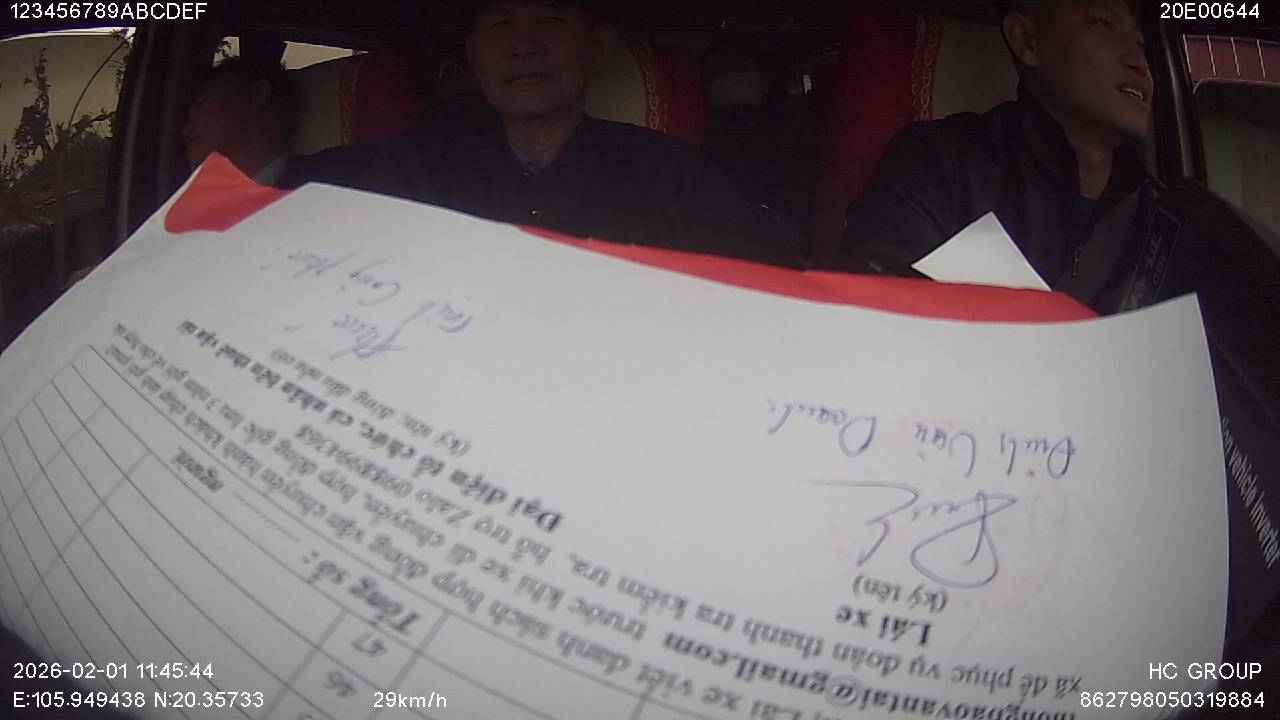 123456789ABCDEF
20E00644
46
47
Tổng số:
người.
Lái xe viết danh sách hợp đồng vận chuyển hành khách chụp ảnh gửi gmail
thongbaovantai@gmail.com trước khi xe di chuyển, hợp đồng gốc lưu 3 năm gửi về cho hợp tác
xã để phục vụ đoàn thanh tra kiểm tra, hỗ trợ Zalo
Đại diện tổ chức, cá nhân bên thuê vận tải
(ký tên, đóng dấu nếu có)
Lái xe
(ký tên)
Đinh Văn Doanh
vehicle inverter
2026-02-01 11:45:44
HC GROUP
E:105.949438 N:20.35733
29km/h
862798050319884